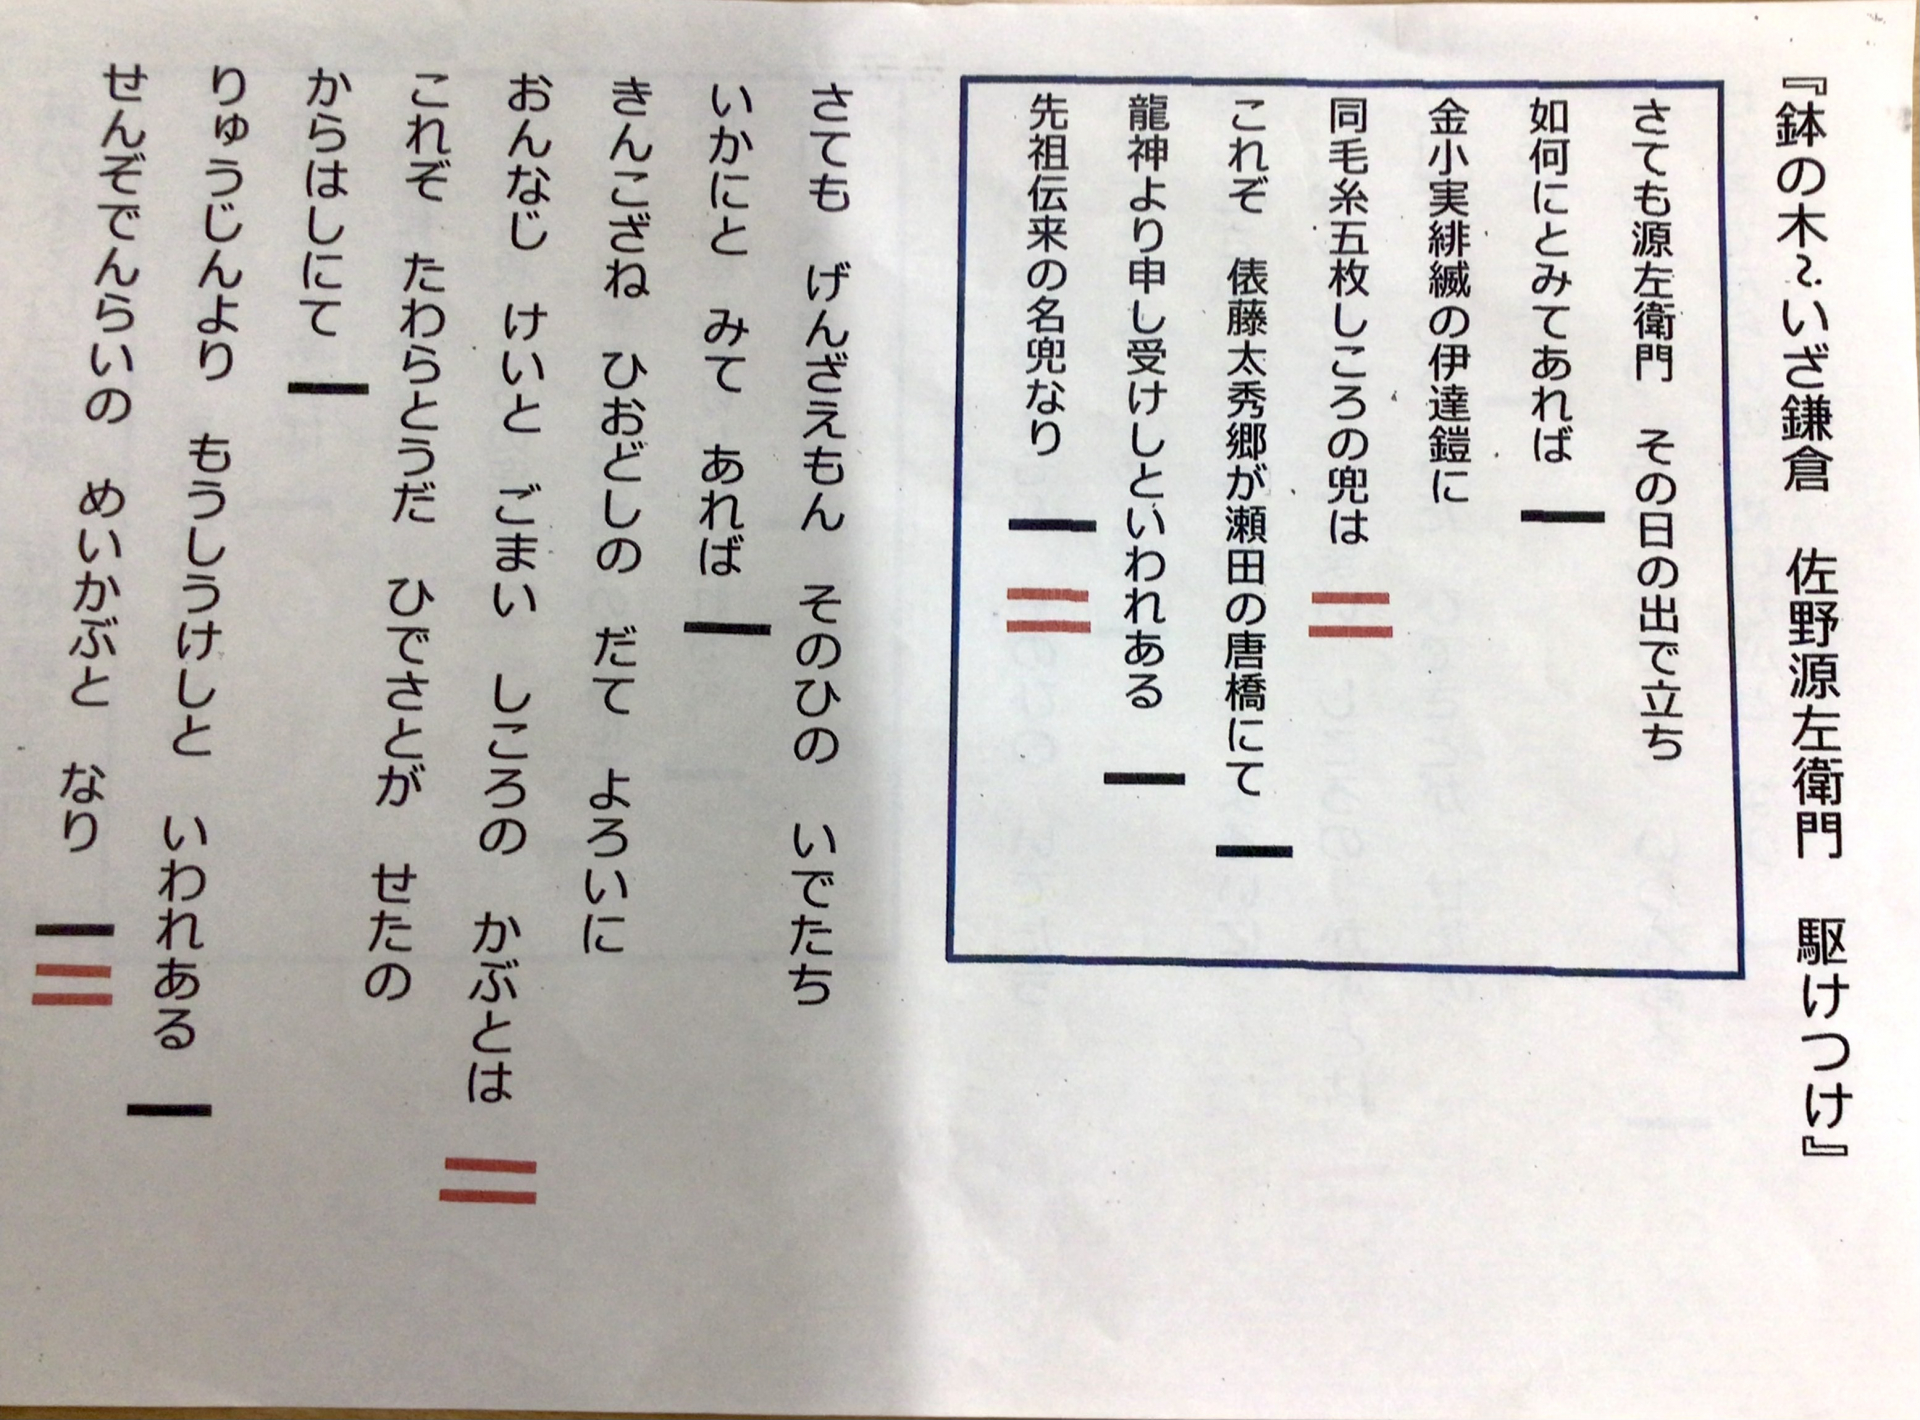 『鉢の木~いざ鎌倉　佐野源左衛門　駆けつけ』
さても源左衛門　その日の出で立ち
如何にとみてあれば
金小実緋縅の伊達鎧に
同毛糸五枚しころの兜は
これぞ　俵藤太秀郷が瀬田の唐橋にて
龍神より申し受けしといわれある
先祖伝来の名兜なり
さても　げんざえもん　そのひの　いでたち
いかにと　みて　あれば
きんこざね　ひおどしの　だて　よろいに
おんなじ　けいと　ごまい　しころの　かぶとは
これぞ　たわらとうだ　ひでさとが　せたの
からはしにて
りゅうじんより　もうしうけしと　いわれある
せんぞでんらいの　めいかぶと　なり